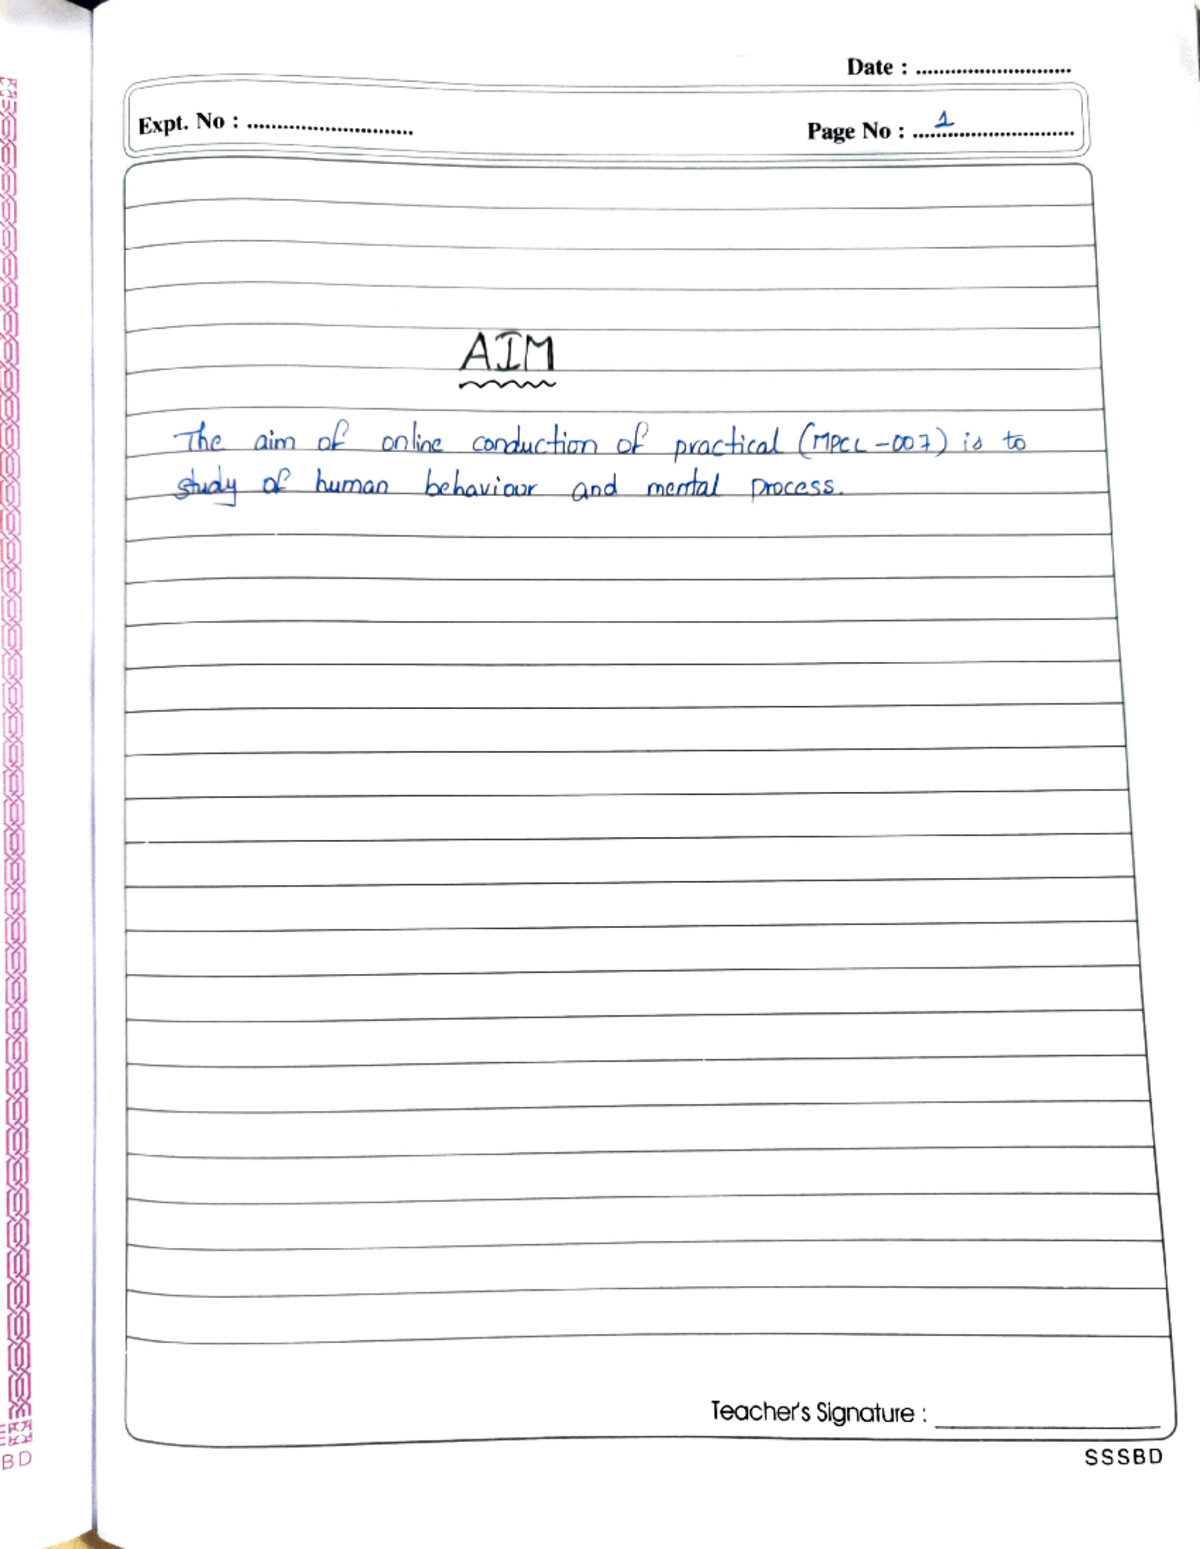 Date : ............................
Expt. No : .............................
Page No : ...1.........................
AIM
The aim of online conduction of practical (MPCL-007) is to
study of human behaviour and mental process.
Teacher's Signature : ____________________
SSSBD
BD